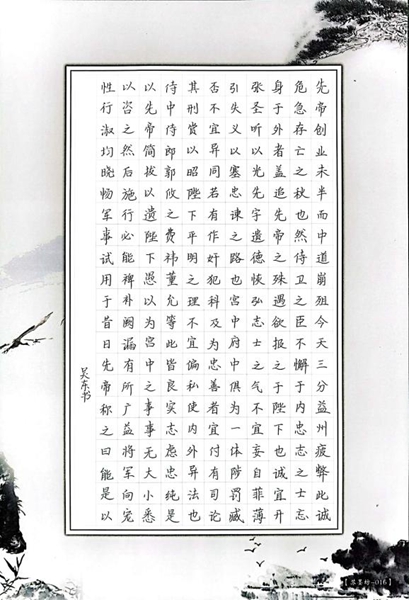 先帝创业未半而中道崩殂今天三分益州疲弊此诚
危急存亡之秋也然侍卫之臣不懈于内忠志之士忘
身于外者盖追先帝之殊遇欲报之于陛下也诚宜开
张圣听以光先字遗德恢弘志士之气不宜妄自菲薄
引失义以塞忠谏之路也宫中府中俱为一体陟罚臧
否不宜异同若有作奸犯科及为忠善者宜付有司论
其刑赏以昭陛下平明之理不宜偏私使内外异法也
侍中侍郎郭攸之费祎董允等此皆良实志虑忠纯是
以先帝简拔以遗陛下愚以为宫中之事事无大小悉
以咨之然后施行必能裨补阙漏有所广益将军向宠
性行淑均晓畅军事试用于昔日先帝称之曰能是以
吴东书
-016】